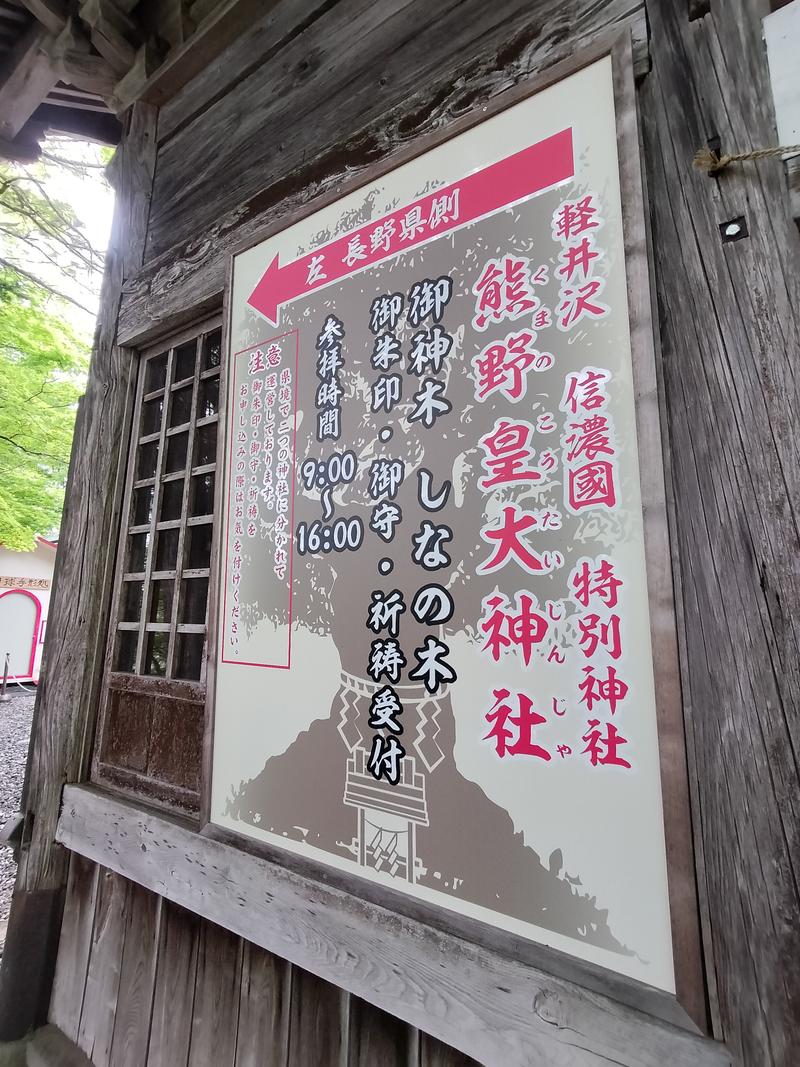 左 長野県側
軽井沢 信濃國 特別神社
熊野皇大神社
くまのこうたいじんじゃ
御神木 しなの木
御朱印・御守・祈祷受付
参拝時間 9:00〜16:00
注意
県境で二つの神社に分かれて
運営しております。
御朱印・御守・祈祷を
お申し込みの際はお気を付けください。
球手形処